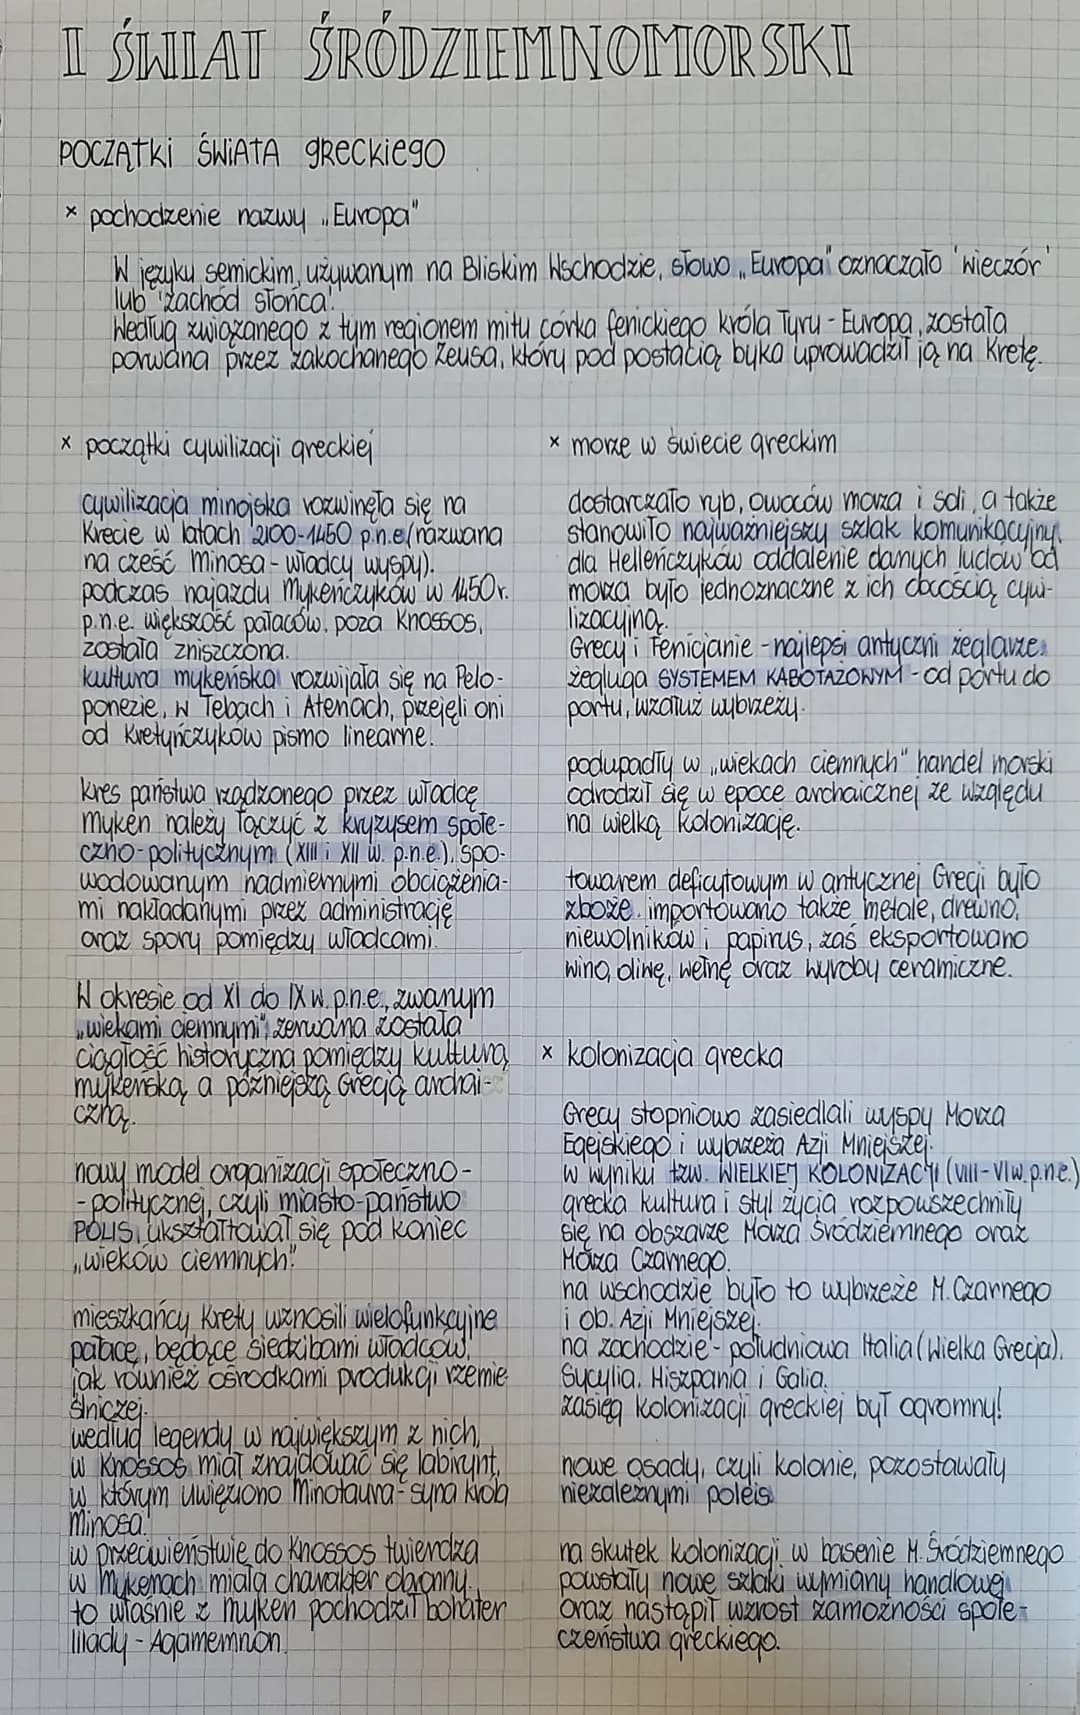 I ŚWIAT ŚRÓDZIEMNOMORSKI
POCZĄTKI ŚWIATA GRECKIEGO
x pochodzenie nazwy „Europa"
W języku semickim, używanym na Bliskim Wschodzie, słowo „Europa" oznaczało 'wieczór'
lub 'zachód słońca'.
Według związanego z tym regionem mitu córka fenickiego króla Tyru - Europa, została
porwana przez zakochanego Zeusa, który pod postacią byka uprowadził ją na Kretę.
x początki cywilizacji greckiej
cywilizacja minojska rozwinęła się na
Krecie w latach 2100-1450 p.n.e (nazwana
na cześć Minosa - władcy wyspy).
podczas najazdu Mykeńczyków w 1450r.
p.n.e. większość pałaców, poza Knossos,
została zniszczona.
kultura mykeńska rozwijała się na Pelo-
ponezie, w Tebach i Atenach, przejęli oni
od Kreteńczyków pismo linearne.
kres państwa rządzonego przez władcę
Myken należy łączyć z kryzysem społe-
czno-politycznym (XIII i XII w. p.n.e.), spo-
wodowanym nadmiernymi obciążenia-
mi nakładanymi przez administrację
oraz spory pomiędzy władcami.
W okresie od XI do IX w. p.n.e., zwanym
„wiekami ciemnymi", zerwana została
ciągłość historyczna pomiędzy kulturą
mykeńską, a późniejszą Grecją archai-
czną.
nowy model organizacji społeczno-
-politycznej, czyli miasto-państwo
POLIS, ukształtował się pod koniec
„wieków ciemnych".
mieszkańcy Krety wznosili wielofunkcyjne
pałace, będące siedzibami władców,
jak również ośrodkami produkcji rzemie
ślniczej.
według legendy w największym z nich,
w Knossos miał znajdować się labirynt,
w którym uwięziono Minotaura - syna króla
Minosa.
w przeciwieństwie do Knossos twierdza
w Mykenach miała charakter obronny.
to właśnie z Myken pochodził bohater
Iliady - Agamemnon.
x morze w świecie greckim
dostarczało ryb, owoców morza i soli, a także
stanowiło najważniejszy szlak komunikacyjny.
dla Helleńczyków oddalenie danych ludów od
morza było jednoznaczne z ich obcością cywi-
lizacyjną.
Grecy i Fenicjanie - najlepsi antyczni żeglarze.
żegluga SYSTEMEM KABOTAŻOWYM - od portu do
portu, wzdłuż wybrzeży.
podupadły w „wiekach ciemnych" handel morski
odrodził się w epoce archaicznej ze względu
na wielką kolonizację.
towarem deficytowym w antycznej Grecji było
zboże. importowano także metale, drewno,
niewolników i papirus, zaś eksportowano
wino, oliwę, wełnę oraz wyroby ceramiczne.
x kolonizacja grecka
Grecy stopniowo zasiedlali wyspy Morza
Egejskiego i wybrzeża Azji Mniejszej.
w wyniku tzw. WIELKIEJ KOLONIZACJI (VIII-VI w.p.n.e.)
grecka kultura i styl życia rozpowszechniły
się na obszarze Morza Śródziemnego oraz
Morza Czarnego.
na wschodzie było to wybrzeże M. Czarnego
i ob. Azji Mniejszej.
na zachodzie - południowa Italia (Wielka Grecja),
Sycylia, Hiszpania i Galia.
zasięg kolonizacji greckiej był ogromny!
nowe osady, czyli kolonie, pozostawały
niezależnymi poleis
na skutek kolonizacji w basenie M. Śródziemnego
powstały nowe szlaki wymiany handlowej
oraz nastąpił wzrost zamożności społe-
czeństwa greckiego.